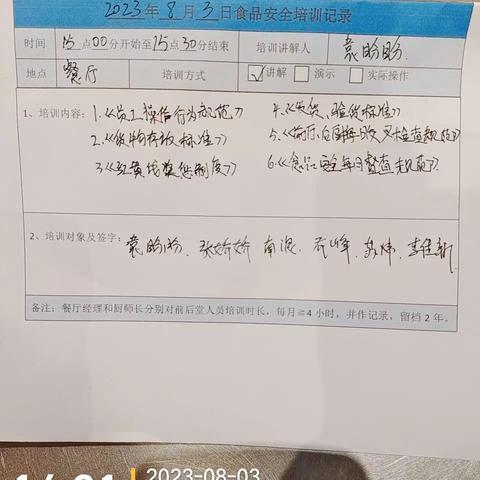 2023年8月3日食品安全培训记录
时间 15点00分开始至15点30分结束 培训讲解人 袁盼盼
地点 餐厅 培训方式 ☑讲解 □演示 □实际操作
1、培训内容：1.《员工操作行为规范》 4.《收货、验货标准》
2.《货物存放标准》 5.《前厅、后厨每日收尾检查规范》
3.《红黄线奖惩制度》 6.《食品安全每日督查规范》
2、培训对象及签字：袁盼盼、张娇娇 南浪、 苏炜、李佳新
备注：餐厅经理和厨师长分别对前后堂人员培训时长，每月≧4小时，并作记录，留档2年。
2023-08-03